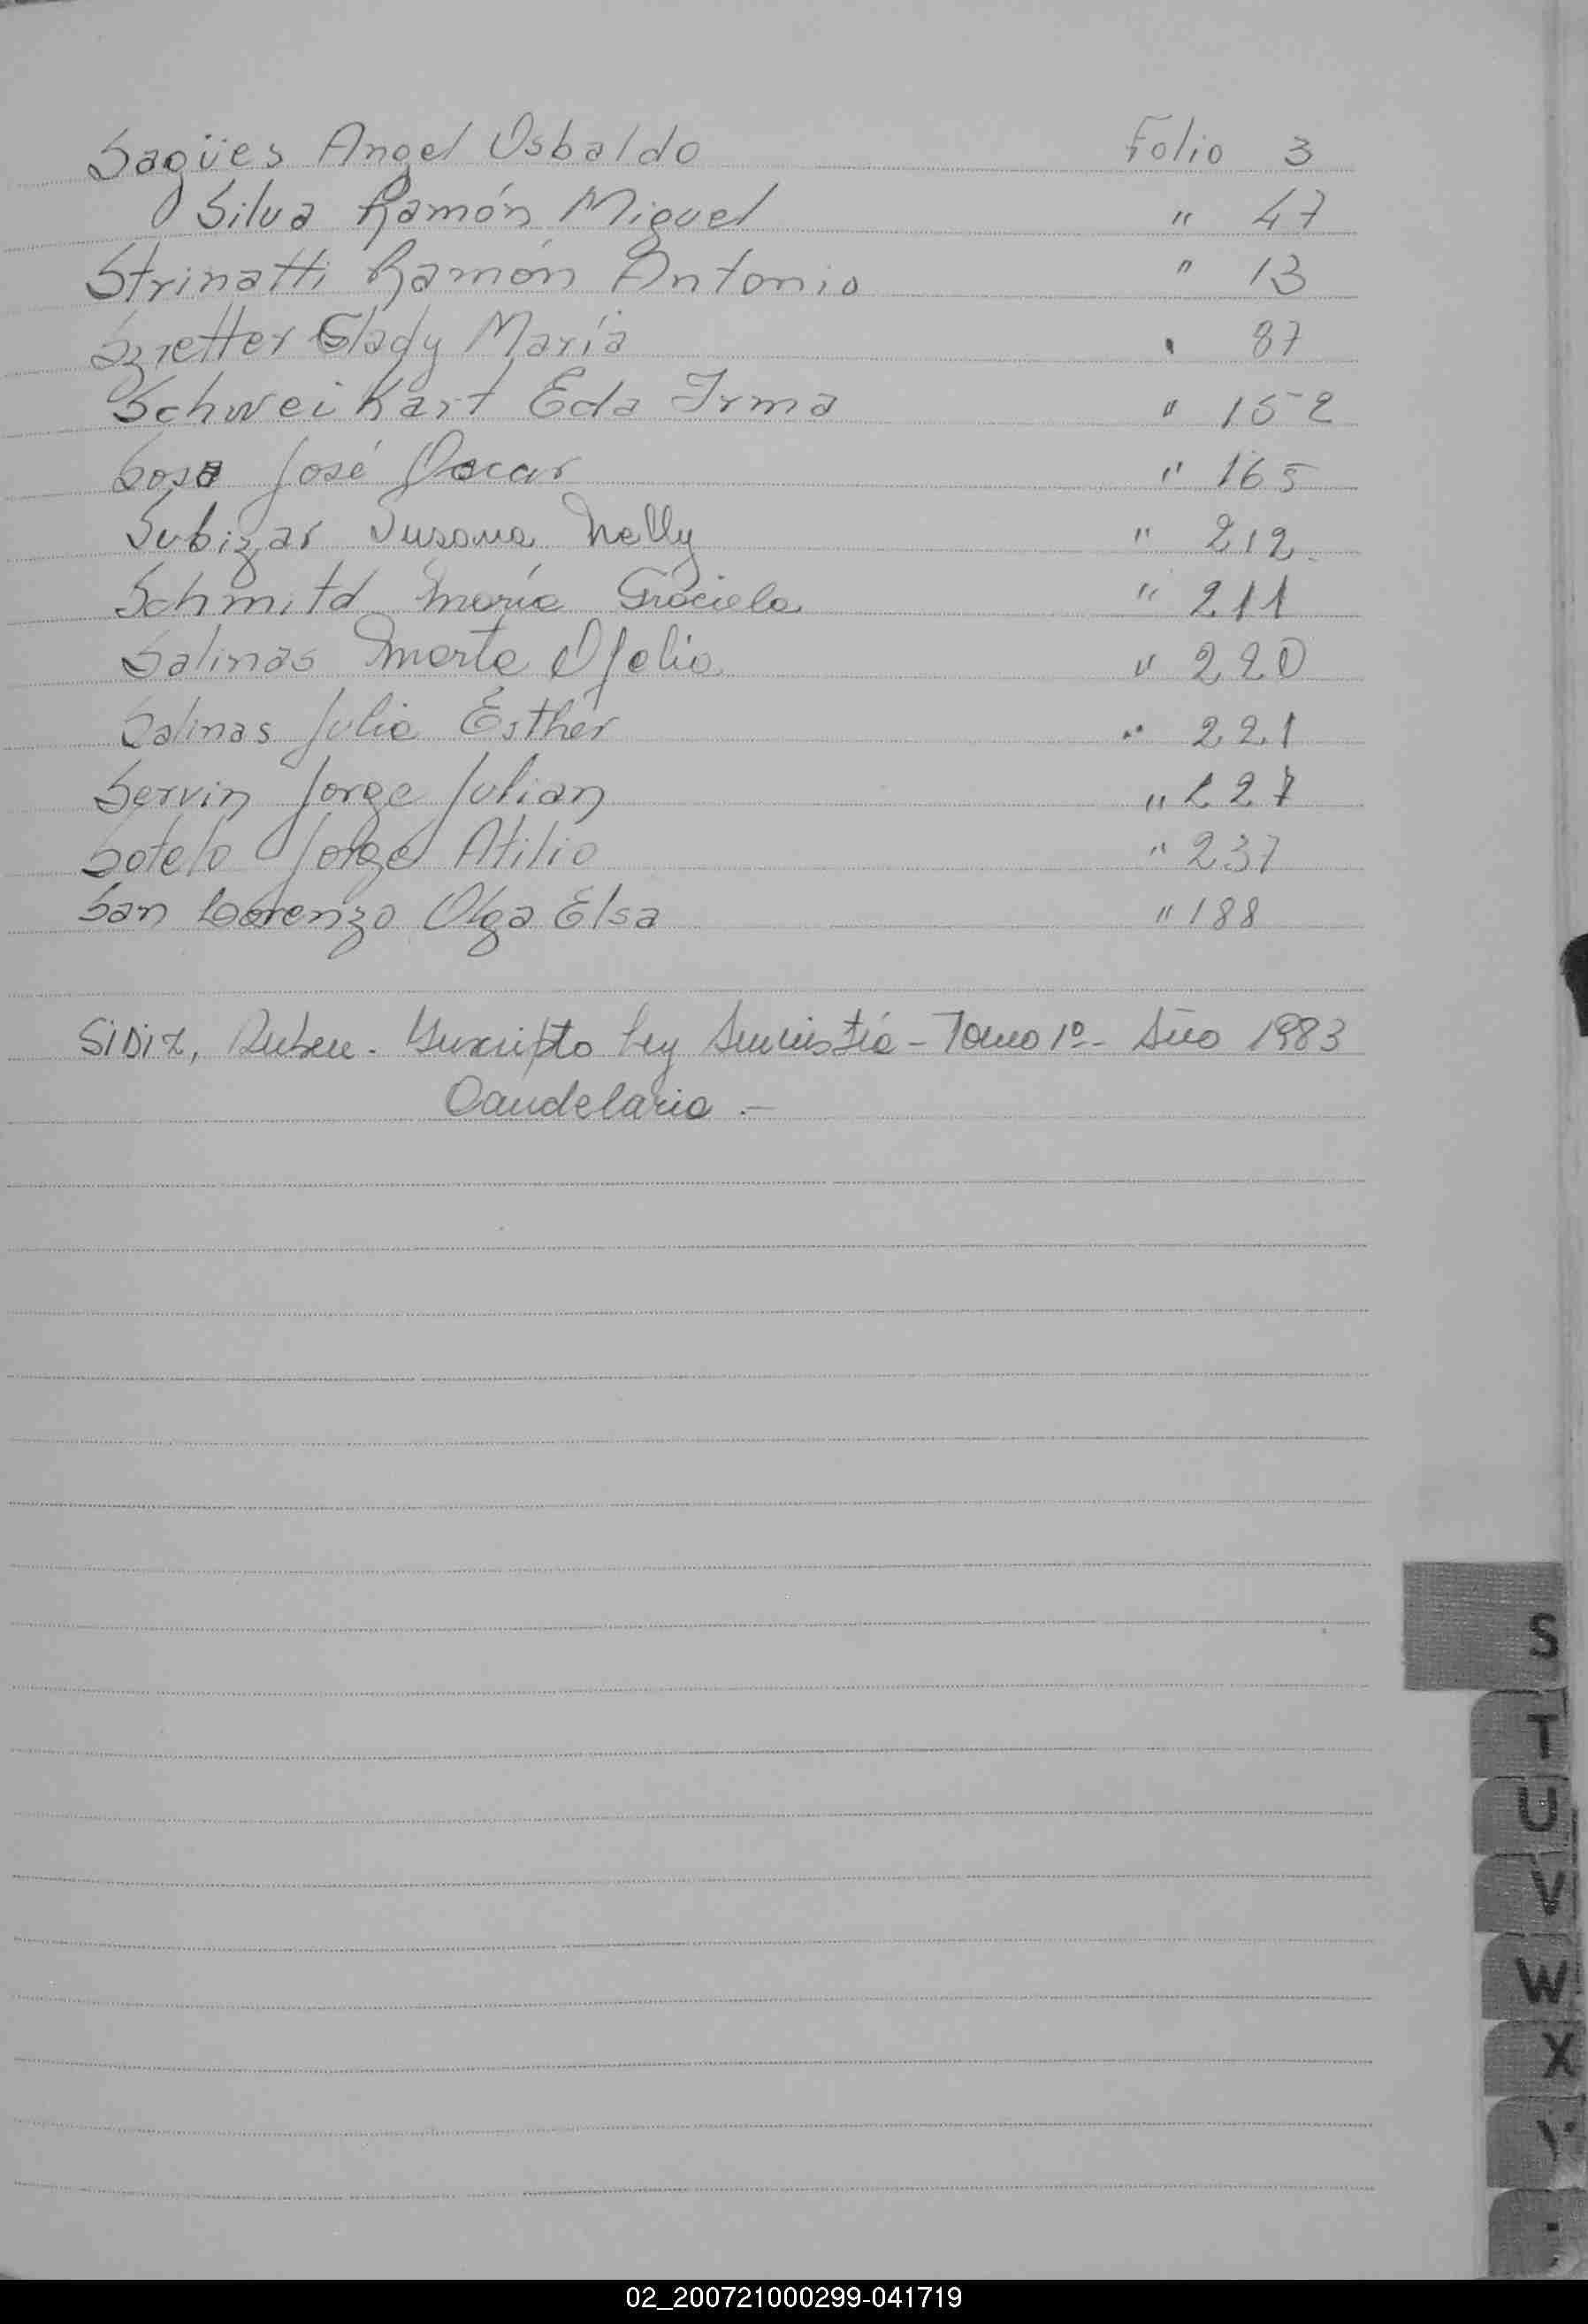 Sagües Angel Osbaldo Folio 3
Silva Ramón Miguel " 47
Strinatti Ramón Antonio " 13
Szretter Glady María " 87
Schweikart Eda Irma " 152
Sosa José Oscar " 165
Subizar Susana Nelly " 212
Schmitd María Graciela " 211
Salinas Marta Ofelia " 220
Salinas Julia Esther " 221
Servin Jorge Julian " 227
Sotelo Jorge Atilio " 237
San Lorenzo Olga Elsa " 188
Ruben. Inscripto Ley Amnistía - Tomo 1º - Año 1983
Candelaria.-
S
T
U
V
W
X
Y
02_200721000299-041719